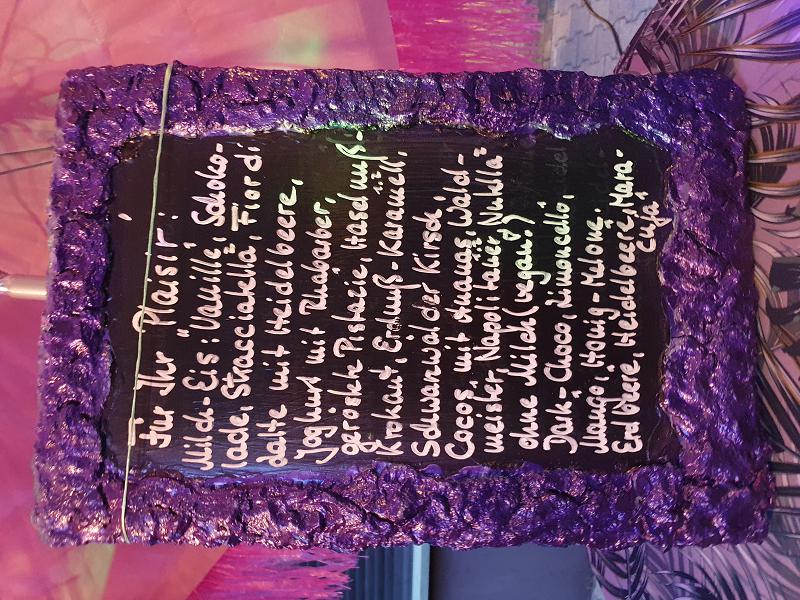 Für Ihr "Plaisir":
Milch-Eis: Vanille, Schoko-
lade, Stracciatella, Fior di
latte mit Heidelbeere,
Joghurt mit Rhabarber,
geröstete Pistazie, Haselnuß-
Krokant, Erdnuß-Karamell,
Schwarzwälder Kirsch
Cocos, mit Ananas, Wald-
meister, Napolitaner, Nutella
ohne Milch (vegan!)
Dark-Choco, Limoncello,
Mango, Honig-Melone,
Erdbeere, Heidelbeere, Mara-
cuja